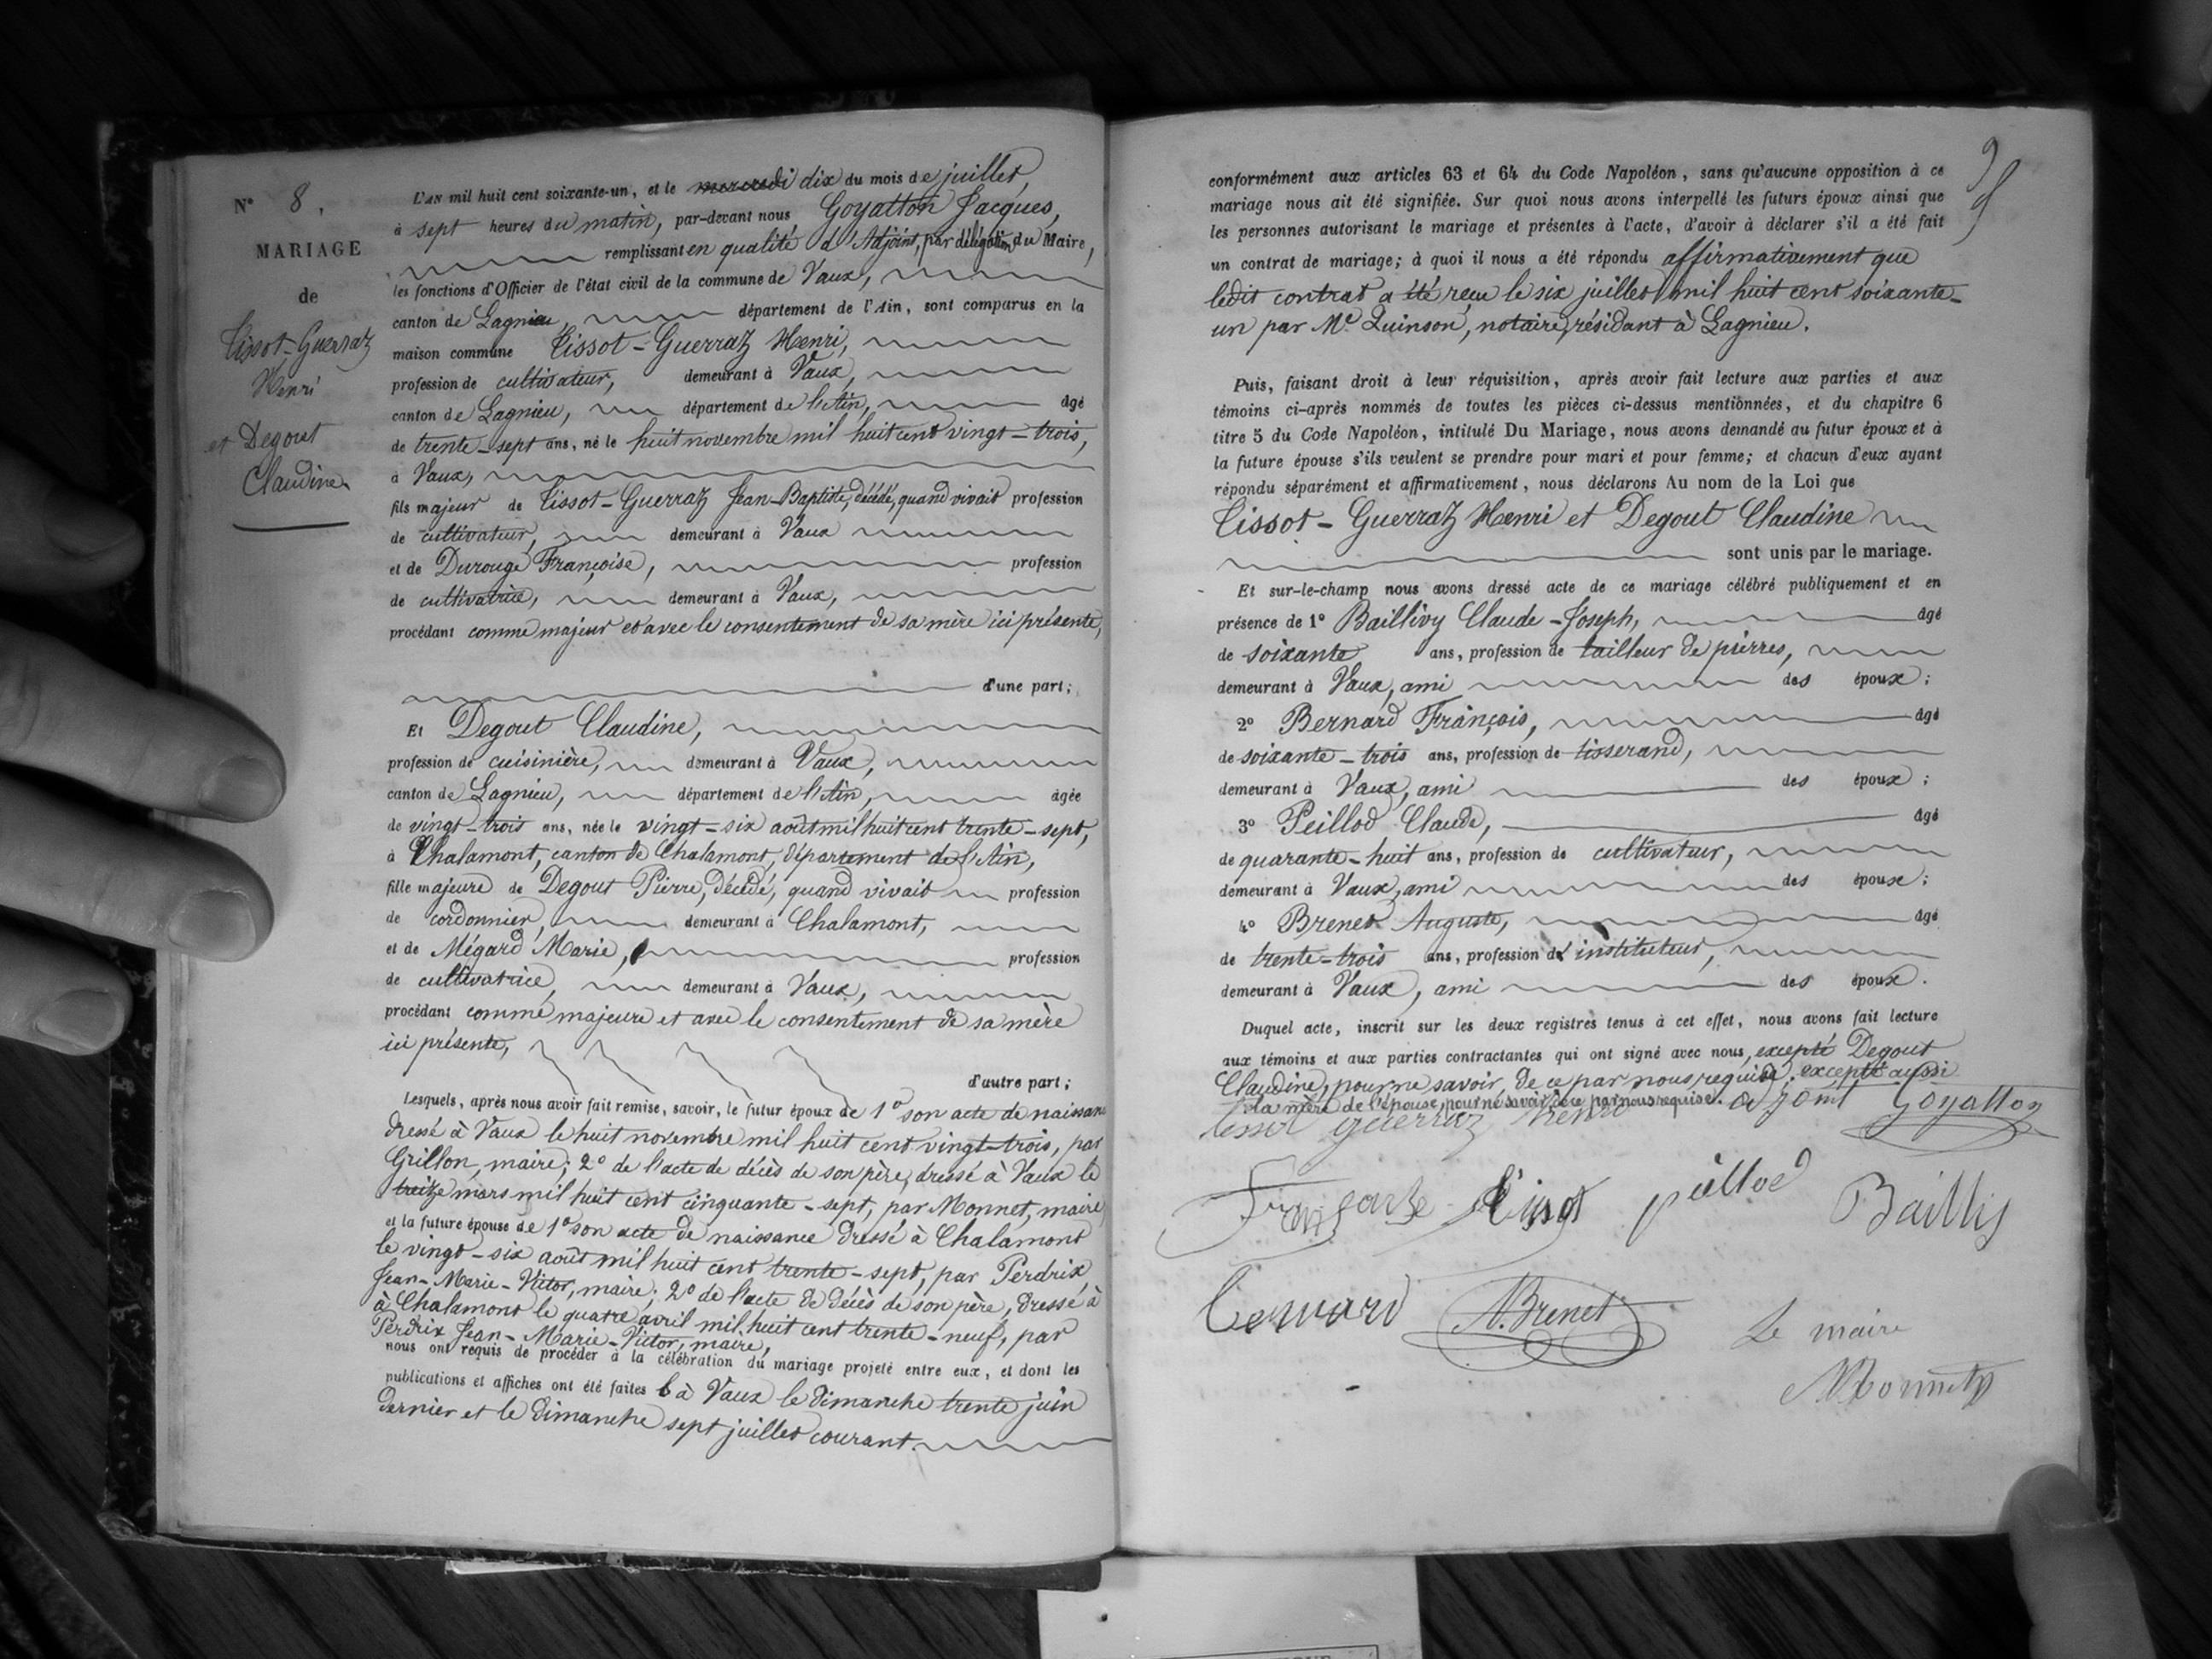 N° 8.
MARIAGE
de
Tissot-Guerraz
Henri
et Degout
Claudine
L'AN mil huit cent soixante-un, et le mercredi dix du mois de juillet,
à sept heures du matin, par-devant nous Goyatton Jacques,
remplissant en qualité d'Adjoint, par délégation du Maire,
les fonctions d'Officier de l'état civil de la commune de Vaux,
canton de Lagnieu, département de l'Ain, sont comparus en la
maison commune Tissot-Guerraz Henri,
profession de cultivateur, demeurant à Vaux,
canton de Lagnieu, département de l'Ain, âgé
de trente-sept ans, né le huit novembre mil huit cent vingt-trois,
à Vaux,
fils majeur de Tissot-Guerraz Jean-Baptiste, décédé, quand vivait profession
de cultivateur, demeurant à Vaux
et de Durouge Françoise, profession
de cultivatrice, demeurant à Vaux,
procédant comme majeur et avec le consentement de sa mère ici présente,
d'une part;
Et Degout Claudine,
profession de cuisinière, demeurant à Vaux,
canton de Lagnieu, département de l'Ain, âgée
de vingt-trois ans, née le vingt-six août mil huit cent trente-sept,
à Chalamont, canton de Chalamont, département de l'Ain,
fille majeure de Degout Pierre, décédé, quand vivait profession
de cordonnier, demeurant à Chalamont,
et de Mégard Marie, profession
de cultivatrice, demeurant à Vaux,
procédant comme majeure et avec le consentement de sa mère
ici présente,
d'autre part;
Lesquels, après nous avoir fait remise, savoir, le futur époux de 1° son acte de naissance
dressé à Vaux le huit novembre mil huit cent vingt-trois, par
Grillon, maire; 2° de l'acte de décès de son père, dressé à Vaux le
treize mars mil huit cent cinquante-sept, par Monnet, maire,
et la future épouse de 1° son acte de naissance dressé à Chalamont
le vingt-six août mil huit cent trente-sept, par Perdrix
Jean-Marie-Victor, maire; 2° de l'acte de décès de son père, dressé à
à Chalamont le quatre avril mil huit cent trente-neuf, par
Perdrix Jean-Marie-Victor, maire,
nous ont requis de procéder à la célébration du mariage projeté entre eux, et dont les
publications et affiches ont été faites à Vaux le dimanche trente juin
dernier et le dimanche sept juillet courant.
conformément aux articles 63 et 64 du Code Napoléon, sans qu'aucune opposition à ce
mariage nous ait été signifiée. Sur quoi nous avons interpellé les futurs époux ainsi que
les personnes autorisant le mariage et présentes à l'acte, d'avoir à déclarer s'il a été fait
un contrat de mariage; à quoi il nous a été répondu affirmativement que
ledit contrat a été reçu le six juillet mil huit cent soixante-
un par Me Quinson, notaire, résidant à Lagnieu.
Puis, faisant droit à leur réquisition, après avoir fait lecture aux parties et aux
témoins ci-après nommés de toutes les pièces ci-dessus mentionnées, et du chapitre 6
titre 5 du Code Napoléon, intitulé Du Mariage, nous avons demandé au futur époux et à
la future épouse s'ils veulent se prendre pour mari et pour femme; et chacun d'eux ayant
répondu séparément et affirmativement, nous déclarons Au nom de la Loi que
Tissot-Guerraz Henri et Degout Claudine
sont unis par le mariage.
Et sur-le-champ nous avons dressé acte de ce mariage célébré publiquement et en
présence de 1° Baillivy Claude-Joseph, âgé
de soixante ans, profession de tailleur de pierres,
demeurant à Vaux, ami des époux;
2° Bernard François, âgé
de soixante-trois ans, profession de tisserand,
demeurant à Vaux, ami des époux;
3° Peillod Claude, âgé
de quarante-huit ans, profession de cultivateur,
demeurant à Vaux, ami des époux;
4° Brenet Auguste, âgé
de trente-trois ans, profession de instituteur,
demeurant à Vaux, ami des époux.
Duquel acte, inscrit sur les deux registres tenus à cet effet, nous avons fait lecture
aux témoins et aux parties contractantes qui ont signé avec nous, excepté Degout
Claudine, pour ne savoir, de ce par nous requise. excepté aussi
la mère de l'épouse, pour ne savoir, de ce par nous requise.
tissot guerraz henri adjoint Goyatton
peillod Baillivy
bernard A. Brenet Le maire
Monnet